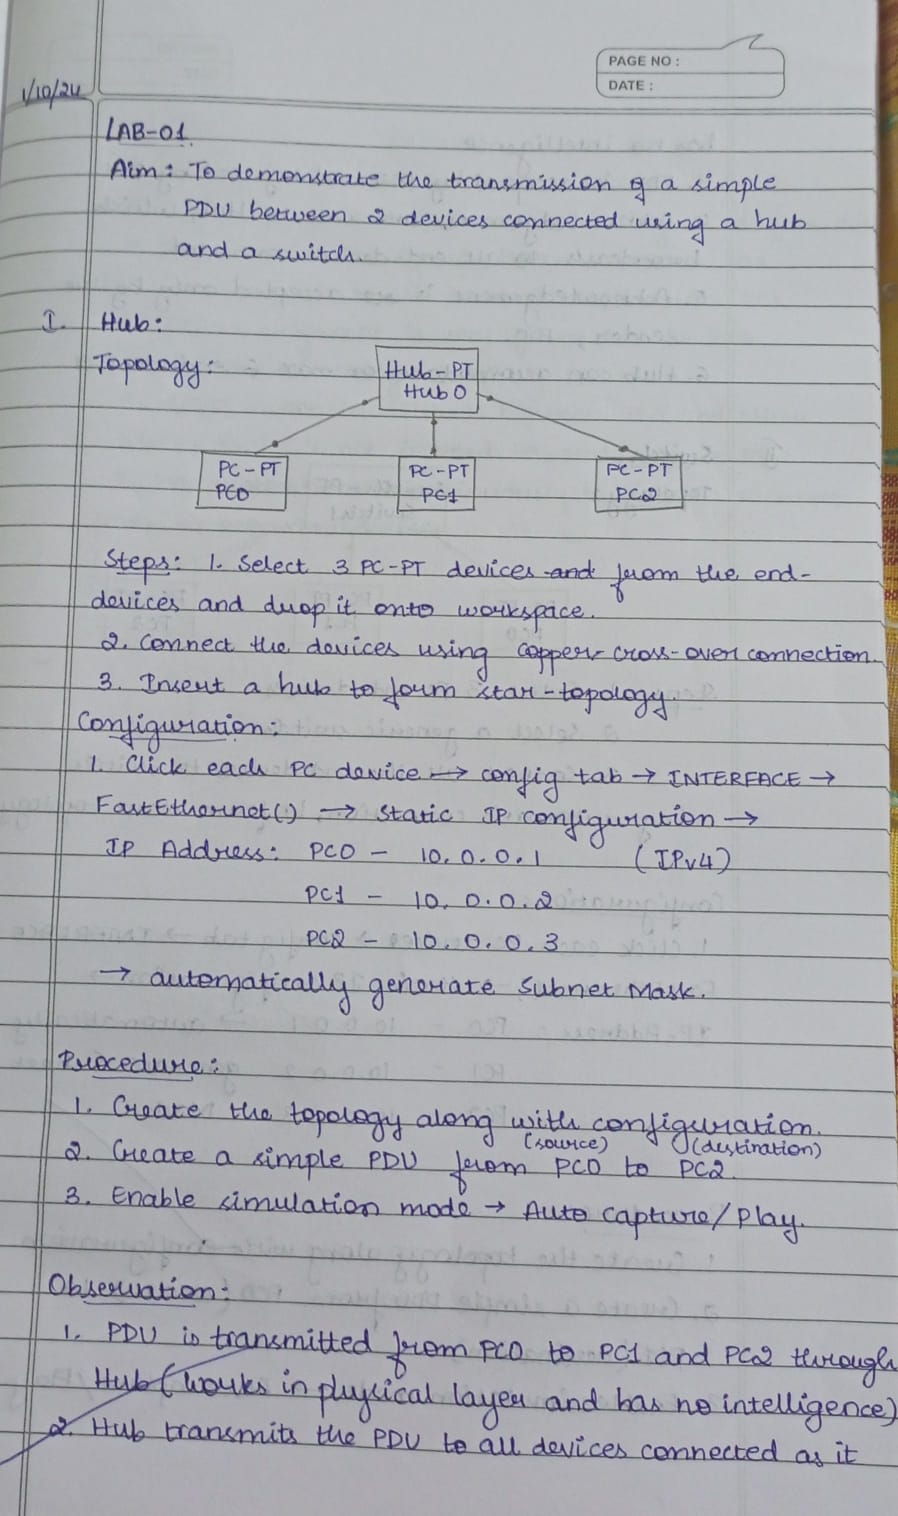 PAGE NO :
DATE :
1/10/24
LAB-01
Aim: To demonstrate the transmission of a simple
PDU between 2 devices connected using a hub
and a switch.
I. Hub:
Topology:
Hub-PT
Hub 0
PC-PT PC-PT PC-PT
PC0 PC1 PC2
Steps: 1. Select 3 PC-PT devices and from the end-
devices and drop it onto workspace.
2. Connect the devices using copper-cross-over connection
3. Insert a hub to form star-topology.
Configuration:
1. Click each PC device → config tab → INTERFACE →
FastEthernet() → static IP configuration →
IP Address: PC0 - 10.0.0.1 (IPv4)
PC1 - 10.0.0.2
PC2 - 10.0.0.3
→ automatically generate Subnet Mask.
Procedure:
1. Create the topology along with configuration.
(source) (destination)
2. Create a simple PDU from PC0 to PC2.
3. Enable simulation mode → Auto capture/Play.
Observation:
1. PDU is transmitted from PC0 to PC1 and PC2 through
Hub (works in physical layer and has no intelligence)
2. Hub transmits the PDU to all devices connected as it